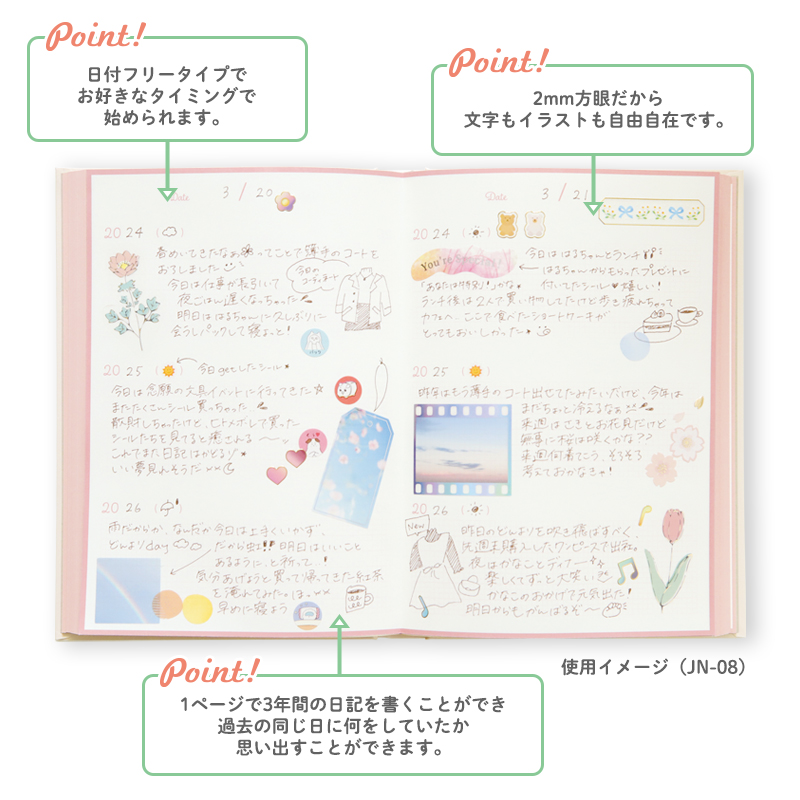 Point!
日付フリータイプで
お好きなタイミングで
始められます。
Point!
2mm方眼だから
文字もイラストも自由自在です。
Date 3 / 20
2024
春めいてきたなぁ ってことで薄手のコートを
おろしました
今日は仕事が長引いて
夜ごはん遅くなっちゃった
明日ははるちゃんに久しぶりに
会うしパックして寝よっと!
今日の
コーディネート
2025
今日getしたシール
今日は念願の文具イベントに行ってきた
またたくさんシール買っちゃった
散財しちゃったけど、ヒトメボレして買った
シールたちを見てると癒される
これでまた日記はかどるゾ
いい夢見れそうだ
2026
雨だからか、なんだか今日は上手くいかず、
どんよりday
だから 明日はいいこと
あるように、と祈って…
気分あげようと買って帰ってきた紅茶
を淹れてみた。ほっ
早めに寝よう
Date 3 / 21
2024
You're
今日ははるちゃんとランチ
はるちゃんからもらったプレゼントに
「あなたは特別!」かな 付いてたシール 嬉しい!
ランチ後は2人で買い物してたけど歩き疲れちゃって
カフェへ。ここで食べたショートケーキが
とってもおいしかった
2025
昨年はもう薄手のコート出せてたみたいだけど、今年は
まだちょっと冷えるなぁ
来週はさきとお花見だけど
無事に桜は咲くかな??
来週何着てこう、そろそろ
考えておかなきゃ!
2026
New
昨日のどんよりを吹き飛ばすべく、
先週末購入したワンピースで出社。
夜はかなことディナー
楽しくてずーっと大笑い
かなこのおかげで元気出た!
明日からもがんばるぞ〜
使用イメージ（JN-08）
Point!
1ページで3年間の日記を書くことができ
過去の同じ日に何をしていたか
思い出すことができます。